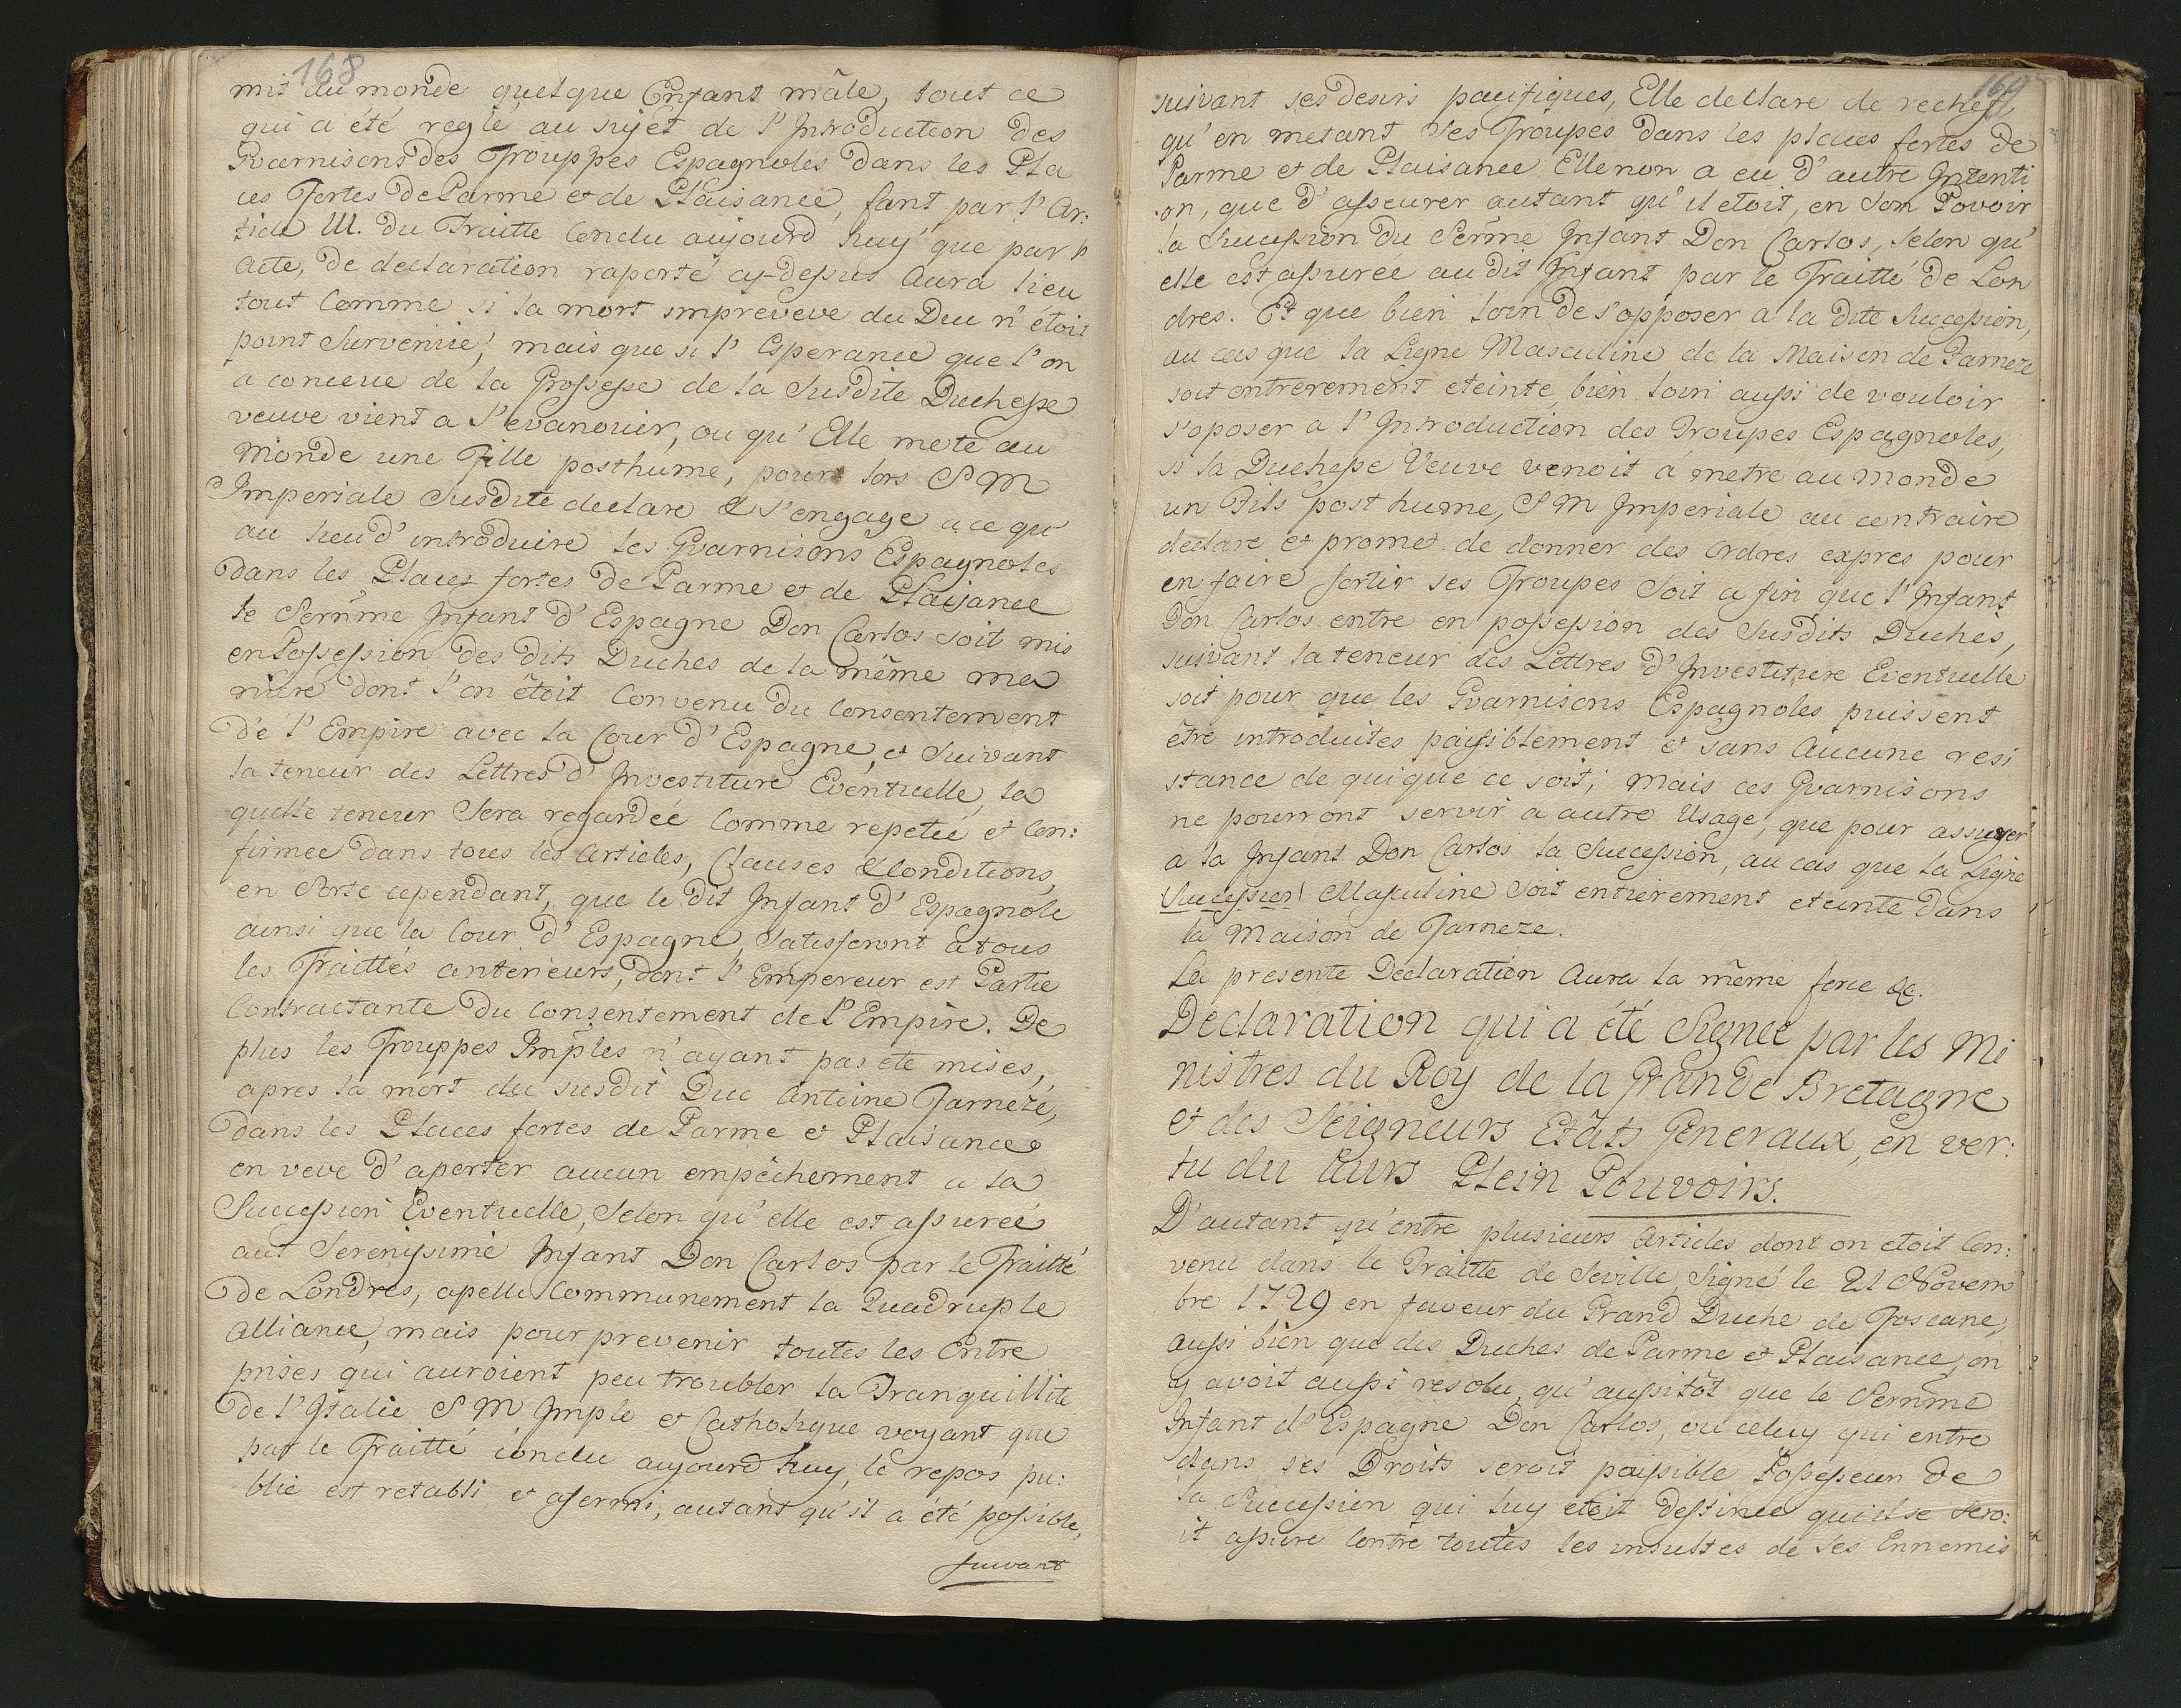 168
mis au monde quelque Enfant mâle, tout ce
qui a été reglé au sujet de l'Introduction des
Gvarnisons des Trouppes Espagnoles dans les Pla
ces Fortes de Parme et de Plaisance, fant par l'Ar:
ticle III. du Traitte Conclu aujourd'huy que par l'
Acte, de declaration raporté cy-dessus Aura lieu
tout Comme si la mort impreveve du Duc n'étoit
point Survenüe, mais que si l'Esperance que l'on
a conceue de la Grossesse de la Susdite Duchesse
veuve vient a s'evanouir, ou qu'Elle mete au
Monde une Fille posthume, pour lors S M
Imperiale Susdite declare & s'engage a ce qu'
au lieu d'introduire les Gvarnisons Espagnoles
dans les Places fortes de Parme et de Plaisance
le Sernme Infant d'Espagne Don Carlos soit mis
en Possession des dits Duches de la même ma
niere dont l'on étoit Convenu du Consentement
de l'Empire avec la Cour d'Espagne, et Suivant
la teneur des Lettres d'Investiture Eventuelle, la
quelle teneur Sera regardée Comme repetée et Con:
firmee dans tous les Articles, Clauses & Conditions,
en Sorte cependant, que le dit Infant d'Espagnole
ainsi que la Cour d'Espagne, Satisferont a tous
les Traittés anterieurs, dont l'Empereur est Partie
Contractante du Consentement de l'Empire. De
plus les Trouppes Imples n'ayant pas ete mises,
apres la mort du susdit Duc Antoine Farneze,
dans les Places fortes de Parme et Plaisance
en veve d'aporter aucun empêchement a la
Succession Eventuelle, Selon qu'elle est assurée
aut Serenissime Infant Don Carlos par le Traitté
de Londres, apellé Communement la Quadruple
Alliance, mais pour prevenir toutes les Entre
prises qui auroient peu troubler la Tranquillite
de l'Italie S M Imple et Catholique voyant que
par le Traitté conclu aujourd'huy, le repos pu:
blic est retabli et afermi, autant qu'il a été possible,
suivant
169
suivant ses desirs pacifiques, Elle declare de rechef,
qu'en metant ses Troupes dans les places fortes de
Parme et de Plaisance Elle non a eu d'autre Intenti
on, que d'asseurer autant qu'il etoit, en Son Povoir
la Succession du Serme Infant Don Carlos, selon qu'
elle est assurée au dit Infant par le Traitté de Lon
dres. Et que bien loin de s'opposer a la dite Succession,
au cas que la Ligne Masculine de la Maison de Farneze
soit entierement eteinte, bien loin aussi de vouloir
s'oposer a l'Introduction des Troupes Espagnoles,
si la Duchesse Veuve venoit a metre au Monde
un Fils posthume, S M Imperiale au contraire
declare et promet de donner des Ordres expres pour
en faire sortir ses Troupes Soit a fin que l'Infant
Don Carlos entre en possession des Susdits Duchés,
suivant la teneur des Lettres d'Investiture Eventuelle
soit pour que les Gvarnisons Espagnoles puissent
être introduites paisiblement et sans Aucune resi
stance de quique ce soit; mais ces Gvarnisons
ne pourront servir a autre Usage, que pour assurer
a la Infant Don Carlos la Succession, au cas que la Ligne
(Succession) Masculine Soit entierement eteinte dans
la Maison de Farneze.
La presente Declaration Aura la même force &c.
Declaration qui a été Signee par les Mi
nistres du Roy de la Grande Bretagne
et des Seigneurs Etâts Generaux, en ver:
tu du leurs Plein Pouvoirs.
D'autant qu'entre plusieurs Articles dont on etoit Con:
venu dans le Traitte de Seville, Signé le 21 Novem
bre 1729 en faveur du Grand Duche de Toscane,
aussi bien que des Duches de Parme et Plaisance, on
y avoit aussi resolu, qu'aussitôt que le Sernme
Infant d'Espagne Don Carlos, ou celuy qui entre
dans ses Droits seroit paisible Possesseur de
la Succession qui luy etoit destinee qu'il se sero:
it assure Contre toutes les insultes de ses Ennemis